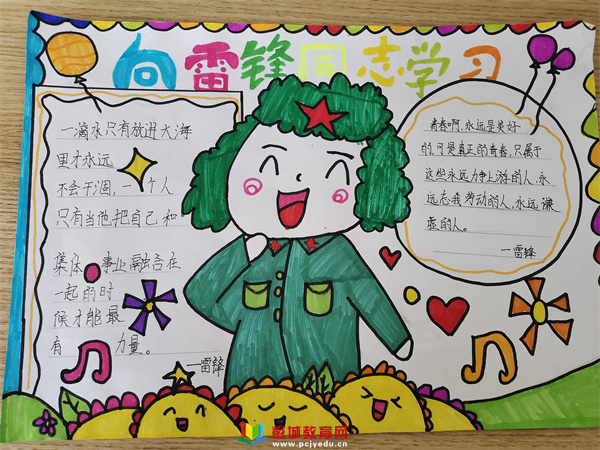 向雷锋同志学习
一滴水只有放进大海
里才永远
不会干涸，一个人
只有当他把自己和
集体事业融合在
一起的时
候才能最
有力量。
一雷锋
青春啊，永远是美好
的可是真正的青春，只属于
这些永远力争上游的人，永
远忘我劳动的人，永远谦
虚的人。
一雷锋
彭城教育网
www.pcjyedu.cn